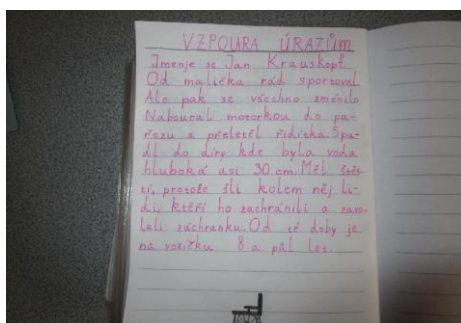 VZPOURA ÚRAZŮM
Jmenuje se Jan Krauskopf.
Od malička rád sportoval
Ale pak se všechno změnilo
Naboural motorkou do pa-
řezu a přeletěl řidítka. Spa-
dl do díry kde byla voda
hluboká asi 30 cm. Měl štěs-
tí, protože šli kolem něj li-
di, kteří ho zachránili a zavo-
lali záchranku. Od té doby je
na vozíčku 8 a půl let.